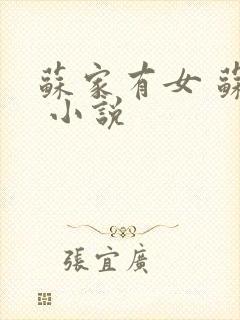 蘇家有女 蘇
小說
張宜廣